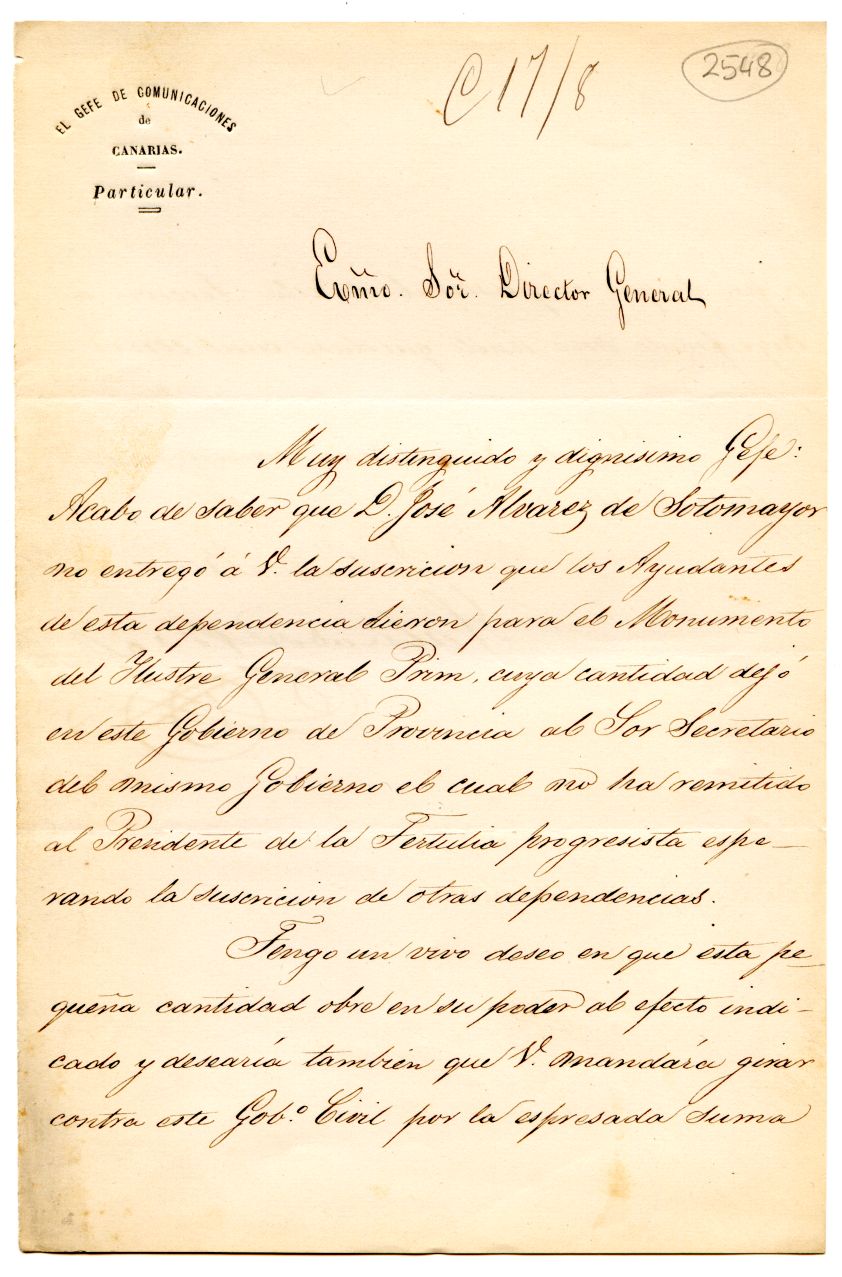 C 17/8
2548
EL GEFE DE COMUNICACIONES
de
CANARIAS.
Particular.
Exmo. Sor. Director General
Muy distinguido y dignisimo Gefe:
Acabo de saber que D. José Alvarez de Sotomayor
no entregó á V. la suscricion que los Ayudantes
de esta dependencia dieron para el Monumento
del Ilustre General Prim, cuya cantidad dejó
en este Gobierno de Provincia al Sor Secretario
del mismo Gobierno el cual no ha remitido
al Presidente de la Tertulia progresista espe-
rando la suscricion de otras dependencias.
Tengo un vivo deseo en que esta pe-
queña cantidad obre en su poder al efecto indi-
cado y desearía también que V. mandára girar
contra este Gobo. Civil por la espresada suma